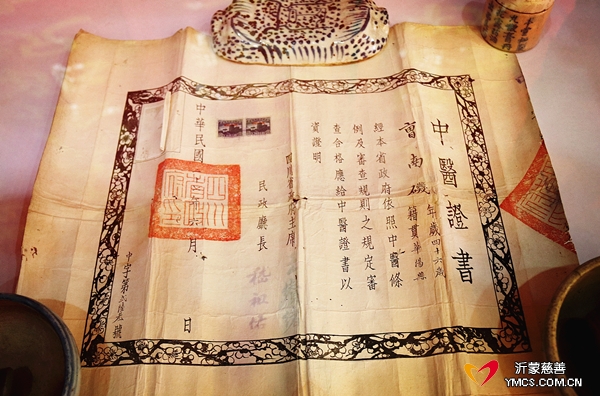 中醫證書
南 年歲四十六歲
籍貫華陽縣
經本省政府依照中醫條
例及審查規則之規定審
查合格應給中醫證書以
資證明
省政府主席
民政廳長 嵇祖佑
中華民國 月 日
中字第 號
沂蒙慈善
YMCS.COM.CN